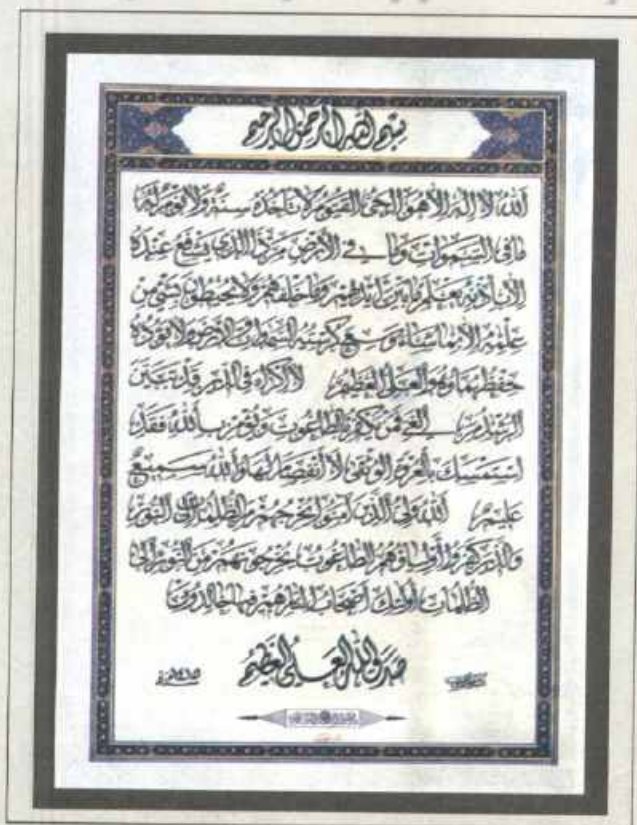 بسم الله الرحمن الرحيم
الله لا إله إلا هو الحي القيوم لا تأخذه سنة ولا نوم له
ما في السموات وما في الأرض من ذا الذي يشفع عنده
إلا بإذنه يعلم ما بين أيديهم وما خلفهم ولا يحيطون بشيء من
علمه إلا بما شاء وسع كرسيه السموات والأرض ولا يؤده
حفظهما وهو العلي العظيم لا إكراه في الدين قد تبين
الرشد من الغي فمن يكفر بالطاغوت ويؤمن بالله فقد
استمسك بالعروة الوثقى لا انفصام لها والله سميع
عليم الله ولي الذين آمنوا يخرجهم من الظلمات إلى النور
والذين كفروا أولياؤهم الطاغوت يخرجونهم من النور إلى
الظلمات أولئك أصحاب النار هم فيها خالدون
صدق الله العلي العظيم